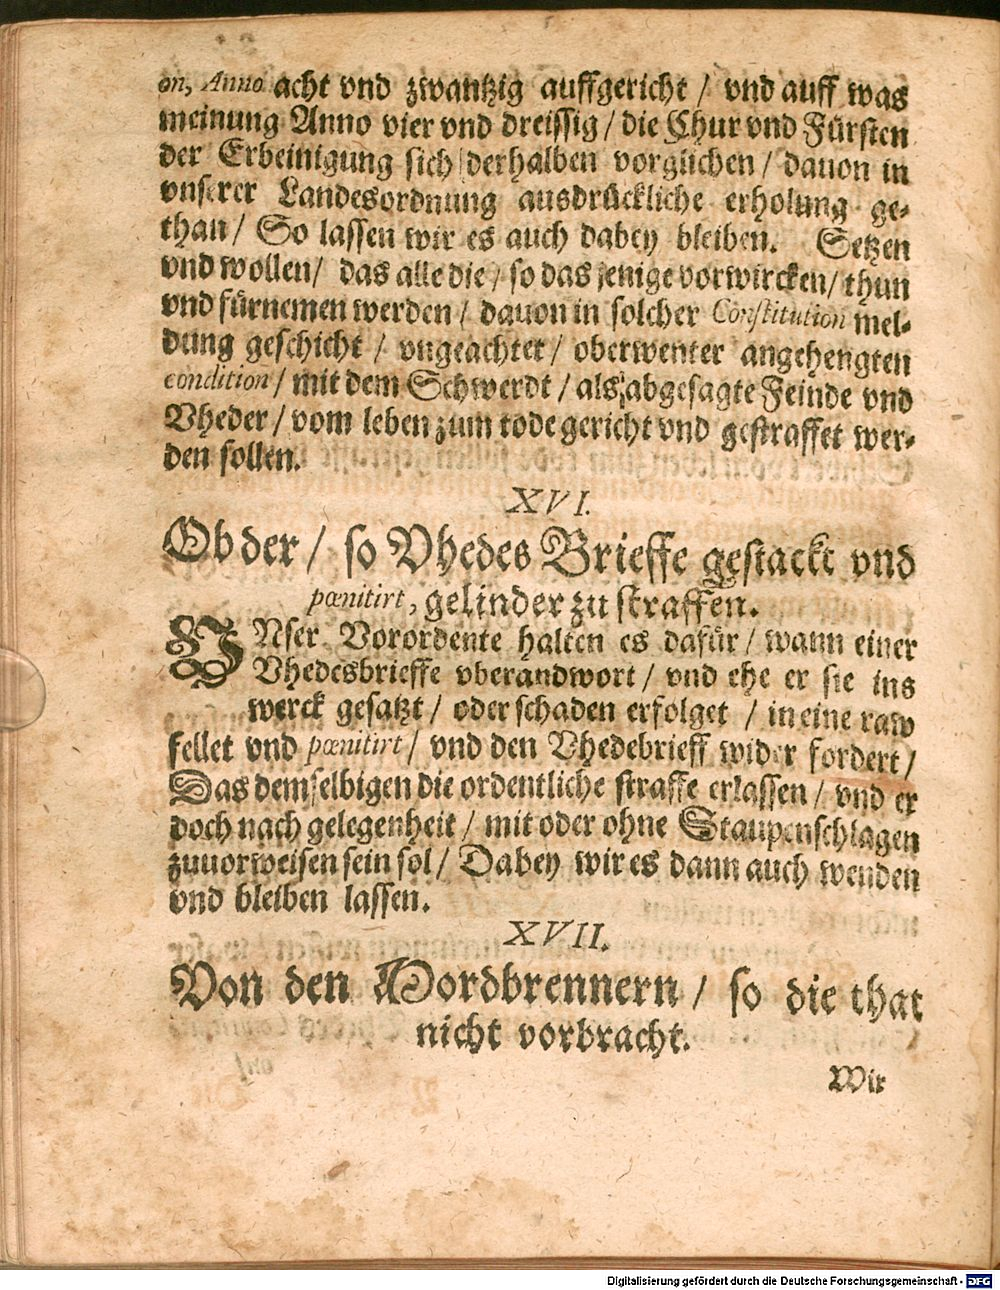 on, Anno acht vnd zwantzig auffgericht / vnd auff was
meinung Anno vier vnd dreissig / die Chur vnd Fürsten
der Erbeinigung sich derhalben vorglichen / dauon in
vnserer Landesordnung ausdrückliche erholung ge-
than / So lassen wir es auch dabey bleiben. Setzen
vnd wollen / das alle die / so das jenige vorwircken / thun
vnd fürnemen werden / dauon in solcher Constitution mel-
dung geschicht / vngeachtet / oberwenter angehengten
condition / mit dem Schwerdt / als abgesagte Feinde vnd
Vheder / vom leben zum tode gericht vnd gestraffet wer-
den sollen.
XVI.
Ob der / so Vhedes Brieffe gestackt vnd
pœnitirt, gelinder zu straffen.
VNser Vorordente halten es dafür / wann einer
Vhedesbrieffe vberandwort / vnd ehe er sie ins
werck gesatzt / oder schaden erfolget / in eine raw
fellet vnd pœnitirt / vnd den Vhedebrieff wider fordert /
Das demselbigen die ordentliche straffe erlassen / vnd er
doch nach gelegenheit / mit oder ohne Staupenschlagen
zuuorweisen sein sol / Dabey wir es dann auch wenden
vnd bleiben lassen.
XVII.
Von den Mordbrennern / so die that
nicht vorbracht.
Wir
Digitalisierung gefördert durch die Deutsche Forschungsgemeinschaft - DFG